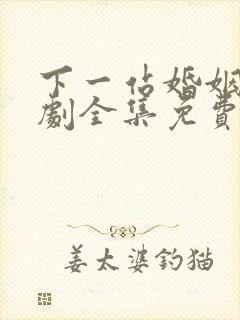 下一站婚姻
劇全集免費
姜太婆釣猫